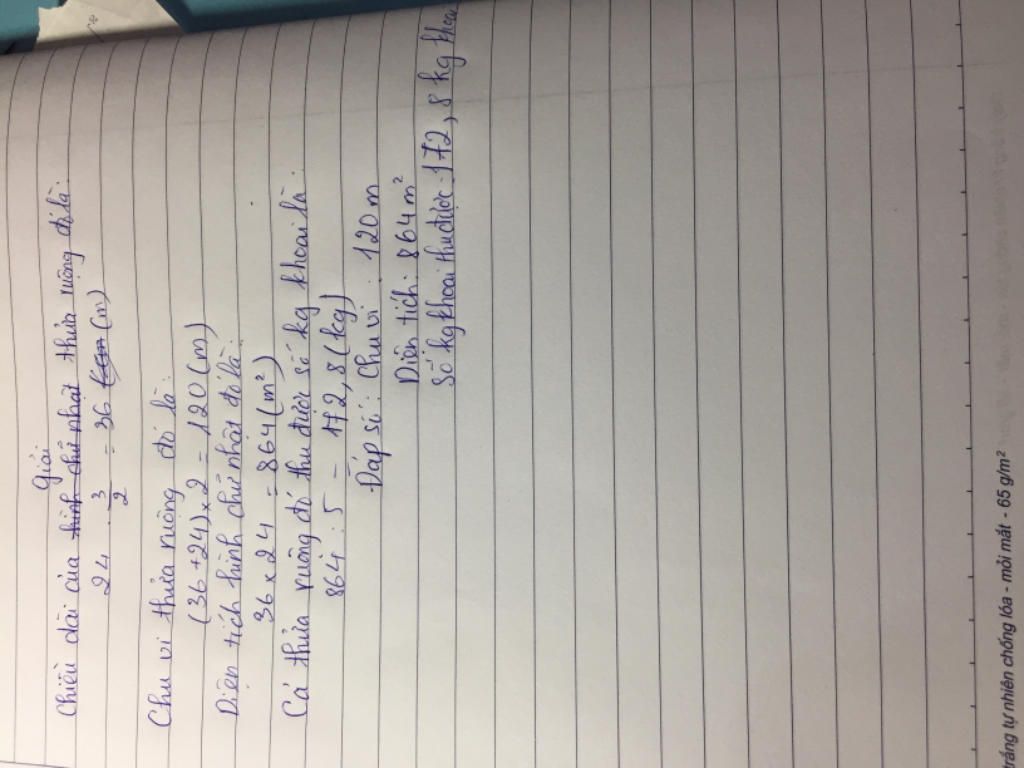 Giải
Chiều dài của hình chữ nhật thửa ruộng đó là:
24 . 3/2 = 36 (cm (m)
Chu vi thửa ruộng đó là:
(36+24) x 2 = 120 (m)
Diện tích hình chữ nhật đó là:
36 x 24 = 864 (m²)
Cả thửa ruộng đó thu được số kg khoai là:
864 : 5 = 172,8 (kg)
Đáp số: Chu vi : 120 m
Diện tích: 864 m²
Số kg khoai thu được: 172,8 kg khoai
trắng tự nhiên chống lóa - mỏi mắt - 65 g/m²